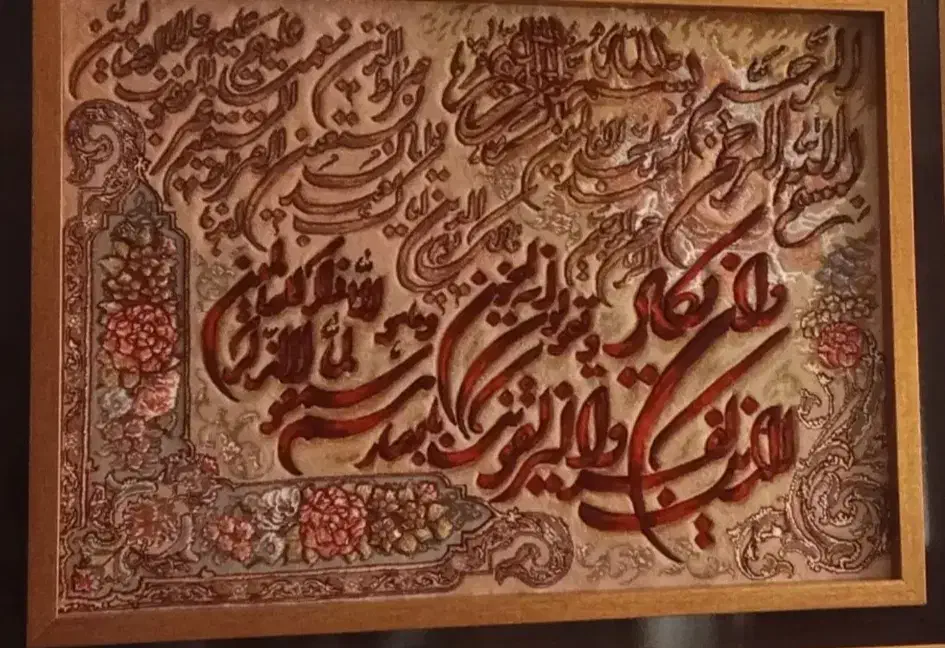 بسم الله الرحمن الرحيم
بسم الله
الحمد لله رب العالمين
الرحمن الرحيم
مالك يوم الدين
اياك نعبد
واياك نستعين
اهدنا الصراط المستقيم
صراط الذين انعمت عليهم
غير المغضوب عليهم ولا الضالين
وان يكاد
الذين كفروا ليزلقونك بابصارهم
لما سمعوا الذكر
و يقولون انه لمجنون
و ما هو الا ذكر للعالمين